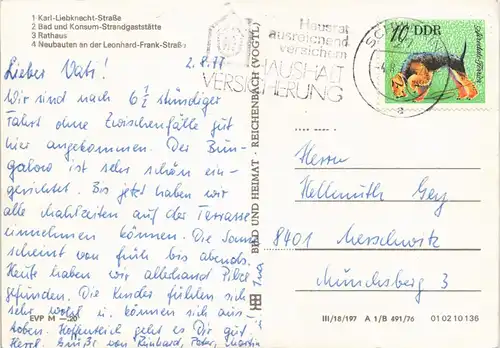 1 Karl-Liebknecht-Straße
2 Bad und Konsum-Strandgaststätte
3 Rathaus
4 Neubauten an der Leonhard-Frank-Straße
2.8.77
Lieber Vati!
Wir sind nach 6 1/2 stündiger
Fahrt ohne Zwischenfälle gut
hier angekommen. Der Bun-
galow ist sehr schön ein-
gerichtet. Bis jetzt haben wir
alle Mahlzeiten auf der Terrasse
einnehmen können. Die Sonne
scheint von früh bis abends.
Heute haben wir allerhand Pilze
gefunden. Die Kinder fühlen sich
sehr wohl u. können sich aus-
toben. Hoffentlich geht es Dir gut.
Herzl. Grüße von Reinhard, Peter, Martin
EVP M —,20
BILD UND HEIMAT · REICHENBACH (VOGTL)
Hausrat
ausreichend
versichern
HAUSHALT
VERSICHERUNG
10 DDR
Herrn
Hellmuth Gey
8401 Merschwitz
Münchsberg 3
III/18/197 A 1/B 491/76 01 02 10 136